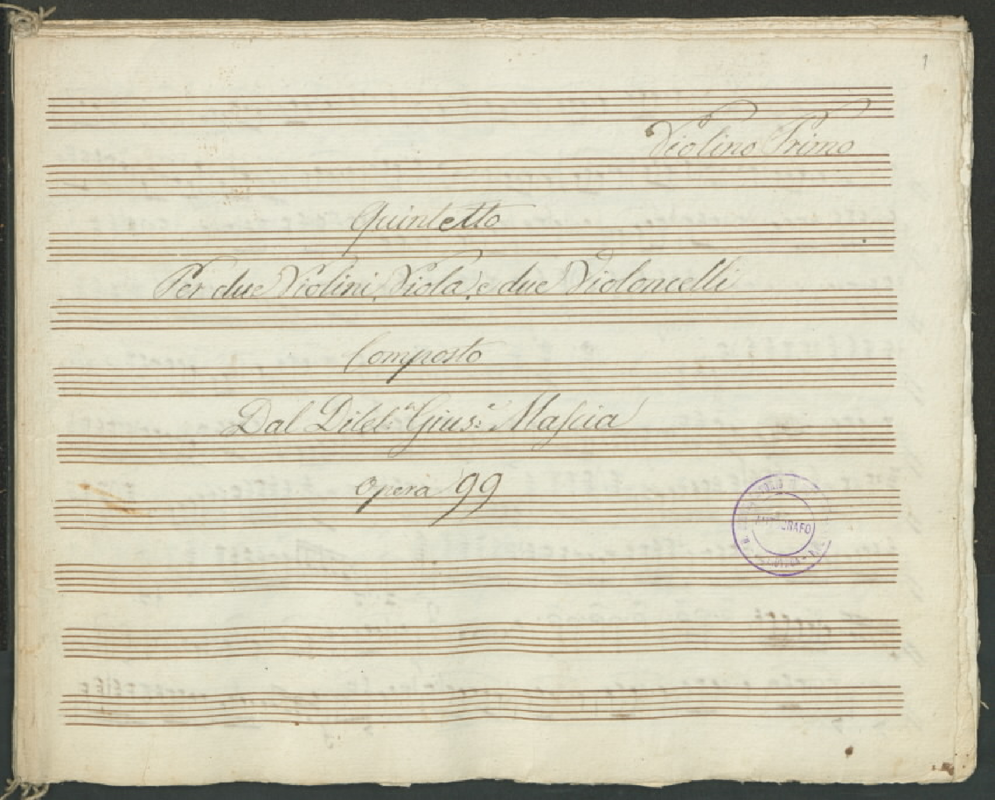 1
Violino Primo
Quintetto
Per due Violini, Viola, e due Violoncelli
Composto
Dal Dilet:e Gius:e Mascia
Opera 99
AUTOGRAFO